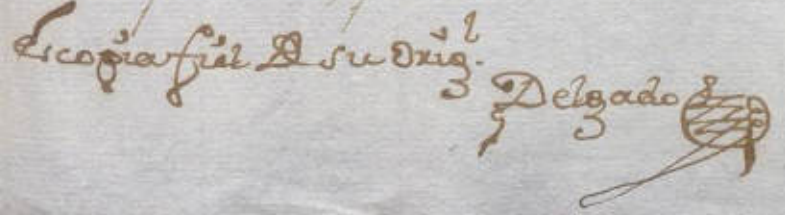 Es copia fiel de su orig.l
Delgado